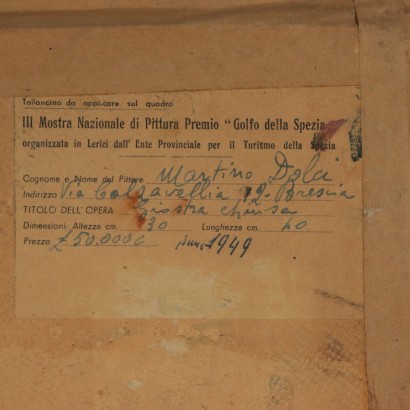 Talloncino da applicare sul quadro
III Mostra Nazionale di Pittura Premio "Golfo della Spezia
organizzata in Lerici dall' Ente Provinciale per il Turismo della Spezia
Cognome e Nome del Pittore Martino Dola
Indirizzo Via 12 Brescia
TITOLO DELL'OPERA Giostra chiusa
Dimensioni: Altezza cm. 30 Lunghezza cm. 40
Prezzo £ 50.000 1949